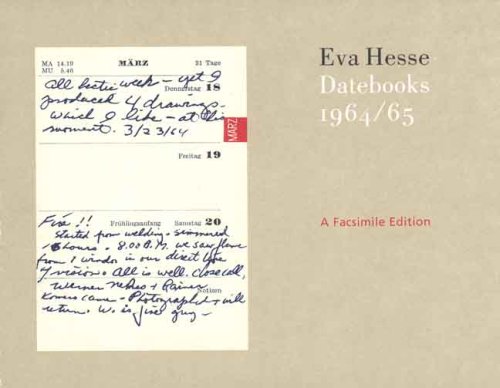 MA 14.19
MU 5.46
MÄRZ
31 Tage
All hectic week – yet I
Donnerstag 18
produced 4 drawings –
which I like – at this
moment. 3/23/64
MÄRZ
Freitag 19
Fire!!
Frühlingsanfang Samstag 20
Started from welding – simmered
hours – 8:00 P.M. we saw flame
from 1 window in our direct line
of vision. All is well. close call,
Notizen
Werner Nekes + Rainer
came – Photographed + will
return. W. is fine guy –
Eva Hesse
Datebooks
1964/65
A Facsimile Edition